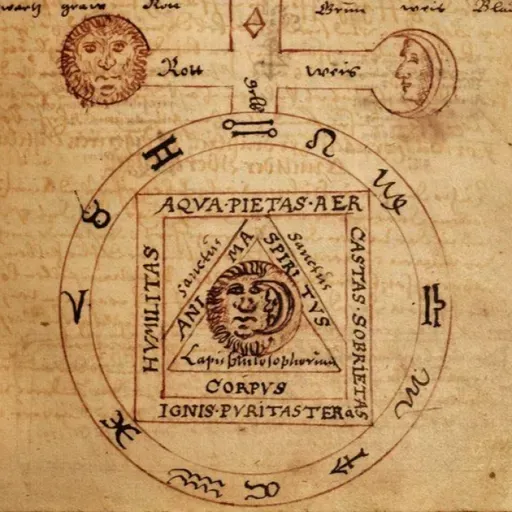 wartz graw Rott Grün weis Blau
Rott weis
gelb
AQVA·PIETAS·AER
HVMILITAS
CASTAS·SOBRIETAS
IGNIS·PVRITAS TERæ
Sanctus
Sanctus
ANIMA
SPIRITVS
Lapis philosophorum
CORPVS